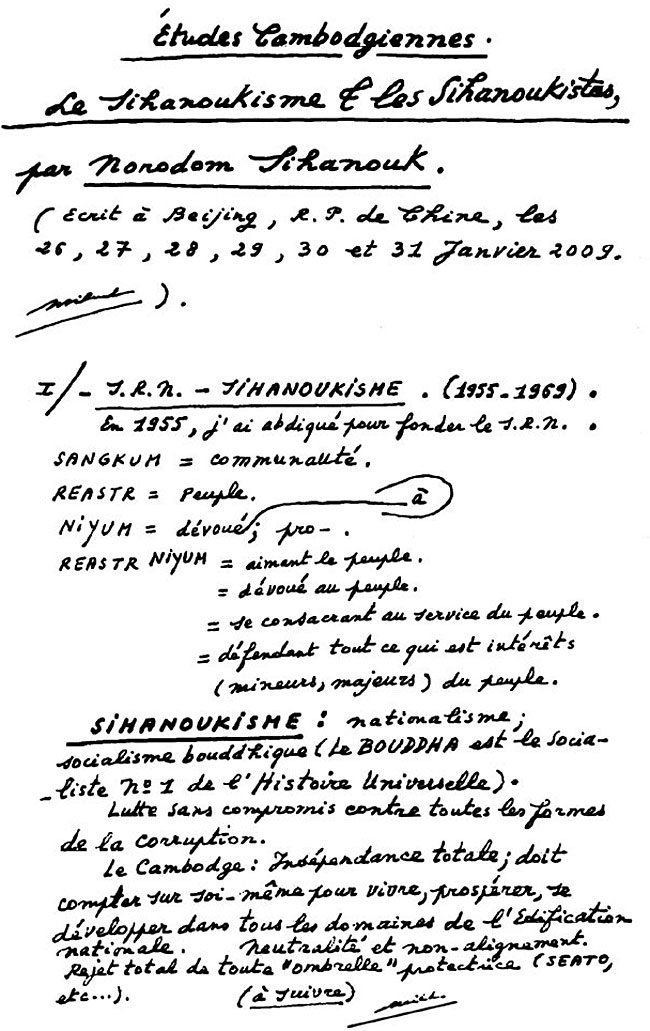 Études Cambodgiennes.
Le Sihanoukisme & les Sihanoukistes,
par Norodom Sihanouk.
(Ecrit à Beijing, R.P. de Chine, les
26, 27, 28, 29, 30 et 31 Janvier 2009.
).
I/- S.R.N. - SIHANOUKISME. (1955-1969).
En 1955, j'ai abdiqué pour fonder le S.R.N..
SANGKUM = communauté.
REASTR = Peuple.
à
NIYUM = dévoué; pro-.
REASTR NIYUM = aimant le peuple.
= dévoué au peuple.
= se consacrant au service du peuple.
= défendant tout ce qui est intérêts
(mineurs, majeurs) du peuple.
SIHANOUKISME : nationalisme;
socialisme bouddhique (Le BOUDDHA est le socia-
-liste nº 1 de l'Histoire Universelle).
Lutte sans compromis contre toutes les formes
de la corruption.
Le Cambodge : Indépendance totale; doit
compter sur soi-même pour vivre, prospérer, se
développer dans tous les domaines de l'Edification
nationale. Neutralité et non-alignement.
Rejet total de toute "ombrelle" protectrice (SEATO,
etc...). (à suivre)